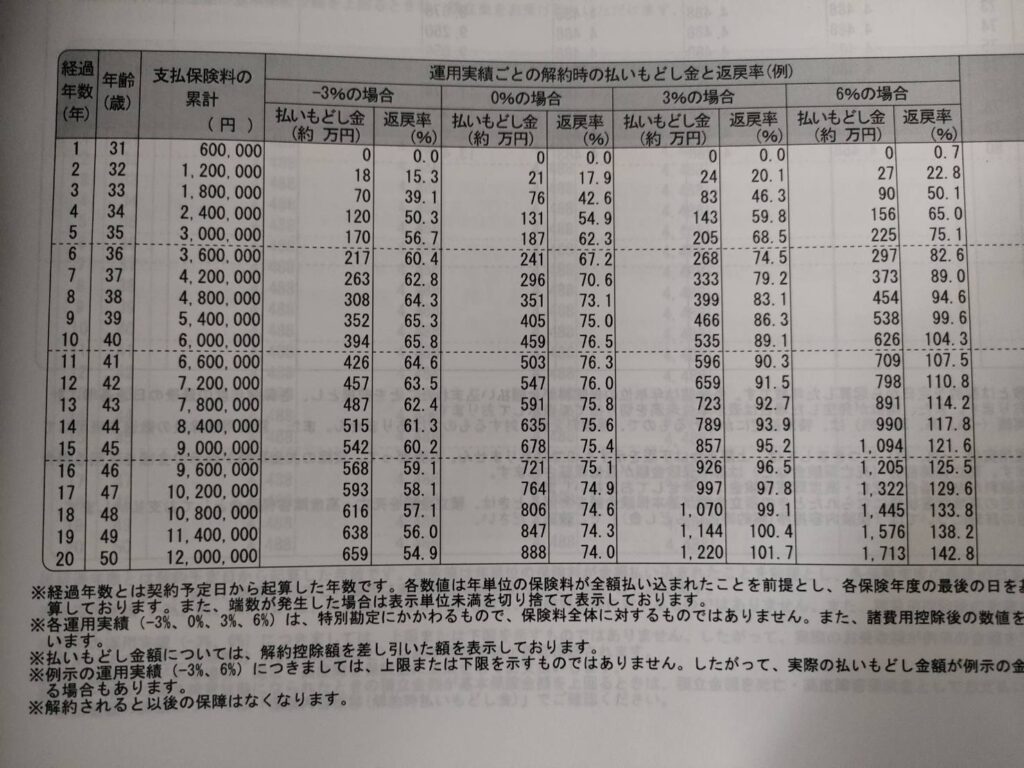 運用実績ごとの解約時の払いもどし金と返戻率(例)
経過年数(年) 年齢(歳) 支払保険料の累計(円) -3%の場合 0%の場合 3%の場合 6%の場合
払いもどし金(約 万円) 返戻率(%) 払いもどし金(約 万円) 返戻率(%) 払いもどし金(約 万円) 返戻率(%) 払いもどし金(約 万円) 返戻率(%)
1 31 600,000 0 0.0 0 0.0 0 0.0 0 0.7
2 32 1,200,000 18 15.3 21 17.9 24 20.1 27 22.8
3 33 1,800,000 70 39.1 76 42.6 83 46.3 90 50.1
4 34 2,400,000 120 50.3 131 54.9 143 59.8 156 65.0
5 35 3,000,000 170 56.7 187 62.3 205 68.5 225 75.1
6 36 3,600,000 217 60.4 241 67.2 268 74.5 297 82.6
7 37 4,200,000 263 62.8 296 70.6 333 79.2 373 89.0
8 38 4,800,000 308 64.3 351 73.1 399 83.1 454 94.6
9 39 5,400,000 352 65.3 405 75.0 466 86.3 538 99.6
10 40 6,000,000 394 65.8 459 76.5 535 89.1 626 104.3
11 41 6,600,000 426 64.6 503 76.3 596 90.3 709 107.5
12 42 7,200,000 457 63.5 547 76.0 659 91.5 798 110.8
13 43 7,800,000 487 62.4 591 75.8 723 92.7 891 114.2
14 44 8,400,000 515 61.3 635 75.6 789 93.9 990 117.8
15 45 9,000,000 542 60.2 678 75.4 857 95.2 1,094 121.6
16 46 9,600,000 568 59.1 721 75.1 926 96.5 1,205 125.5
17 47 10,200,000 593 58.1 764 74.9 997 97.8 1,322 129.6
18 48 10,800,000 616 57.1 806 74.6 1,070 99.1 1,445 133.8
19 49 11,400,000 638 56.0 847 74.3 1,144 100.4 1,576 138.2
20 50 12,000,000 659 54.9 888 74.0 1,220 101.7 1,713 142.8
※経過年数とは契約予定日から起算した年数です。各数値は年単位の保険料が全額払い込まれたことを前提とし、各保険年度の最後の日を基
算しております。また、端数が発生した場合は表示単位未満を切り捨てて表示しております。
※各運用実績(-3%、0%、3%、6%)は、特別勘定にかかわるもので、保険料全体に対するものではありません。また、諸費用控除後の数値を
います。
※払いもどし金額については、解約控除額を差し引いた額を表示しております。
※例示の運用実績(-3%、6%)につきましては、上限または下限を示すものではありません。したがって、実際の払いもどし金額が例示の金
る場合もあります。
※解約されると以後の保障はなくなります。